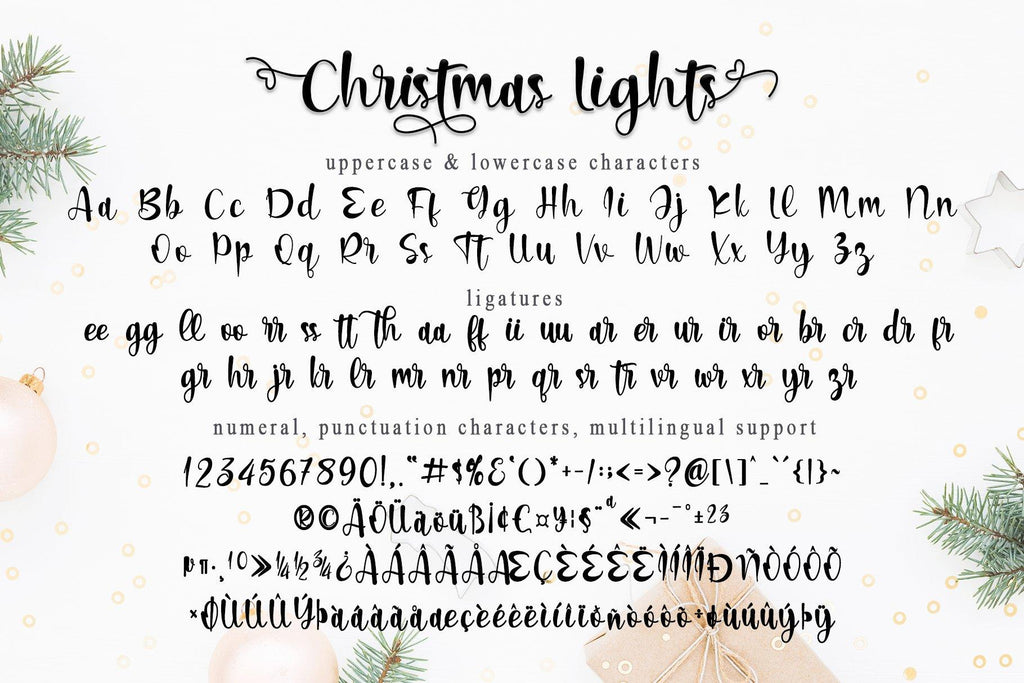 Christmas lights
uppercase & lowercase characters
Aa Bb Cc Dd Ee Ff Gg Hh Ii Jj Kk Ll Mm Nn
Oo Pp Qq Rr Ss Tt Uu Vv Ww Xx Yy Zz
ligatures
ee gg ll oo rr ss tt th aa ff ii uu ar er ur ir or br cr dr fr
gr hr jr kr lr mr nr pr qr sr tr vr wr xr yr zr
numeral, punctuation characters, multilingual support
1234567890!,."#$%&'()*+-/:;<=>?@[\]^_`´{|}~
®©ÄÖÜäöüß¡¢€¤¥¦§¨ª«¬-¯°±23
µ¶·¸¹º»¼½¾¿ÀÁÂÃÅÆÇÈÉÊËÌÍÎÏÐÑÒÓÔÕ
×ØÙÚÛÝÞàáâãåæçèéêëìíîïðñòóôõ÷øùúûýþÿ